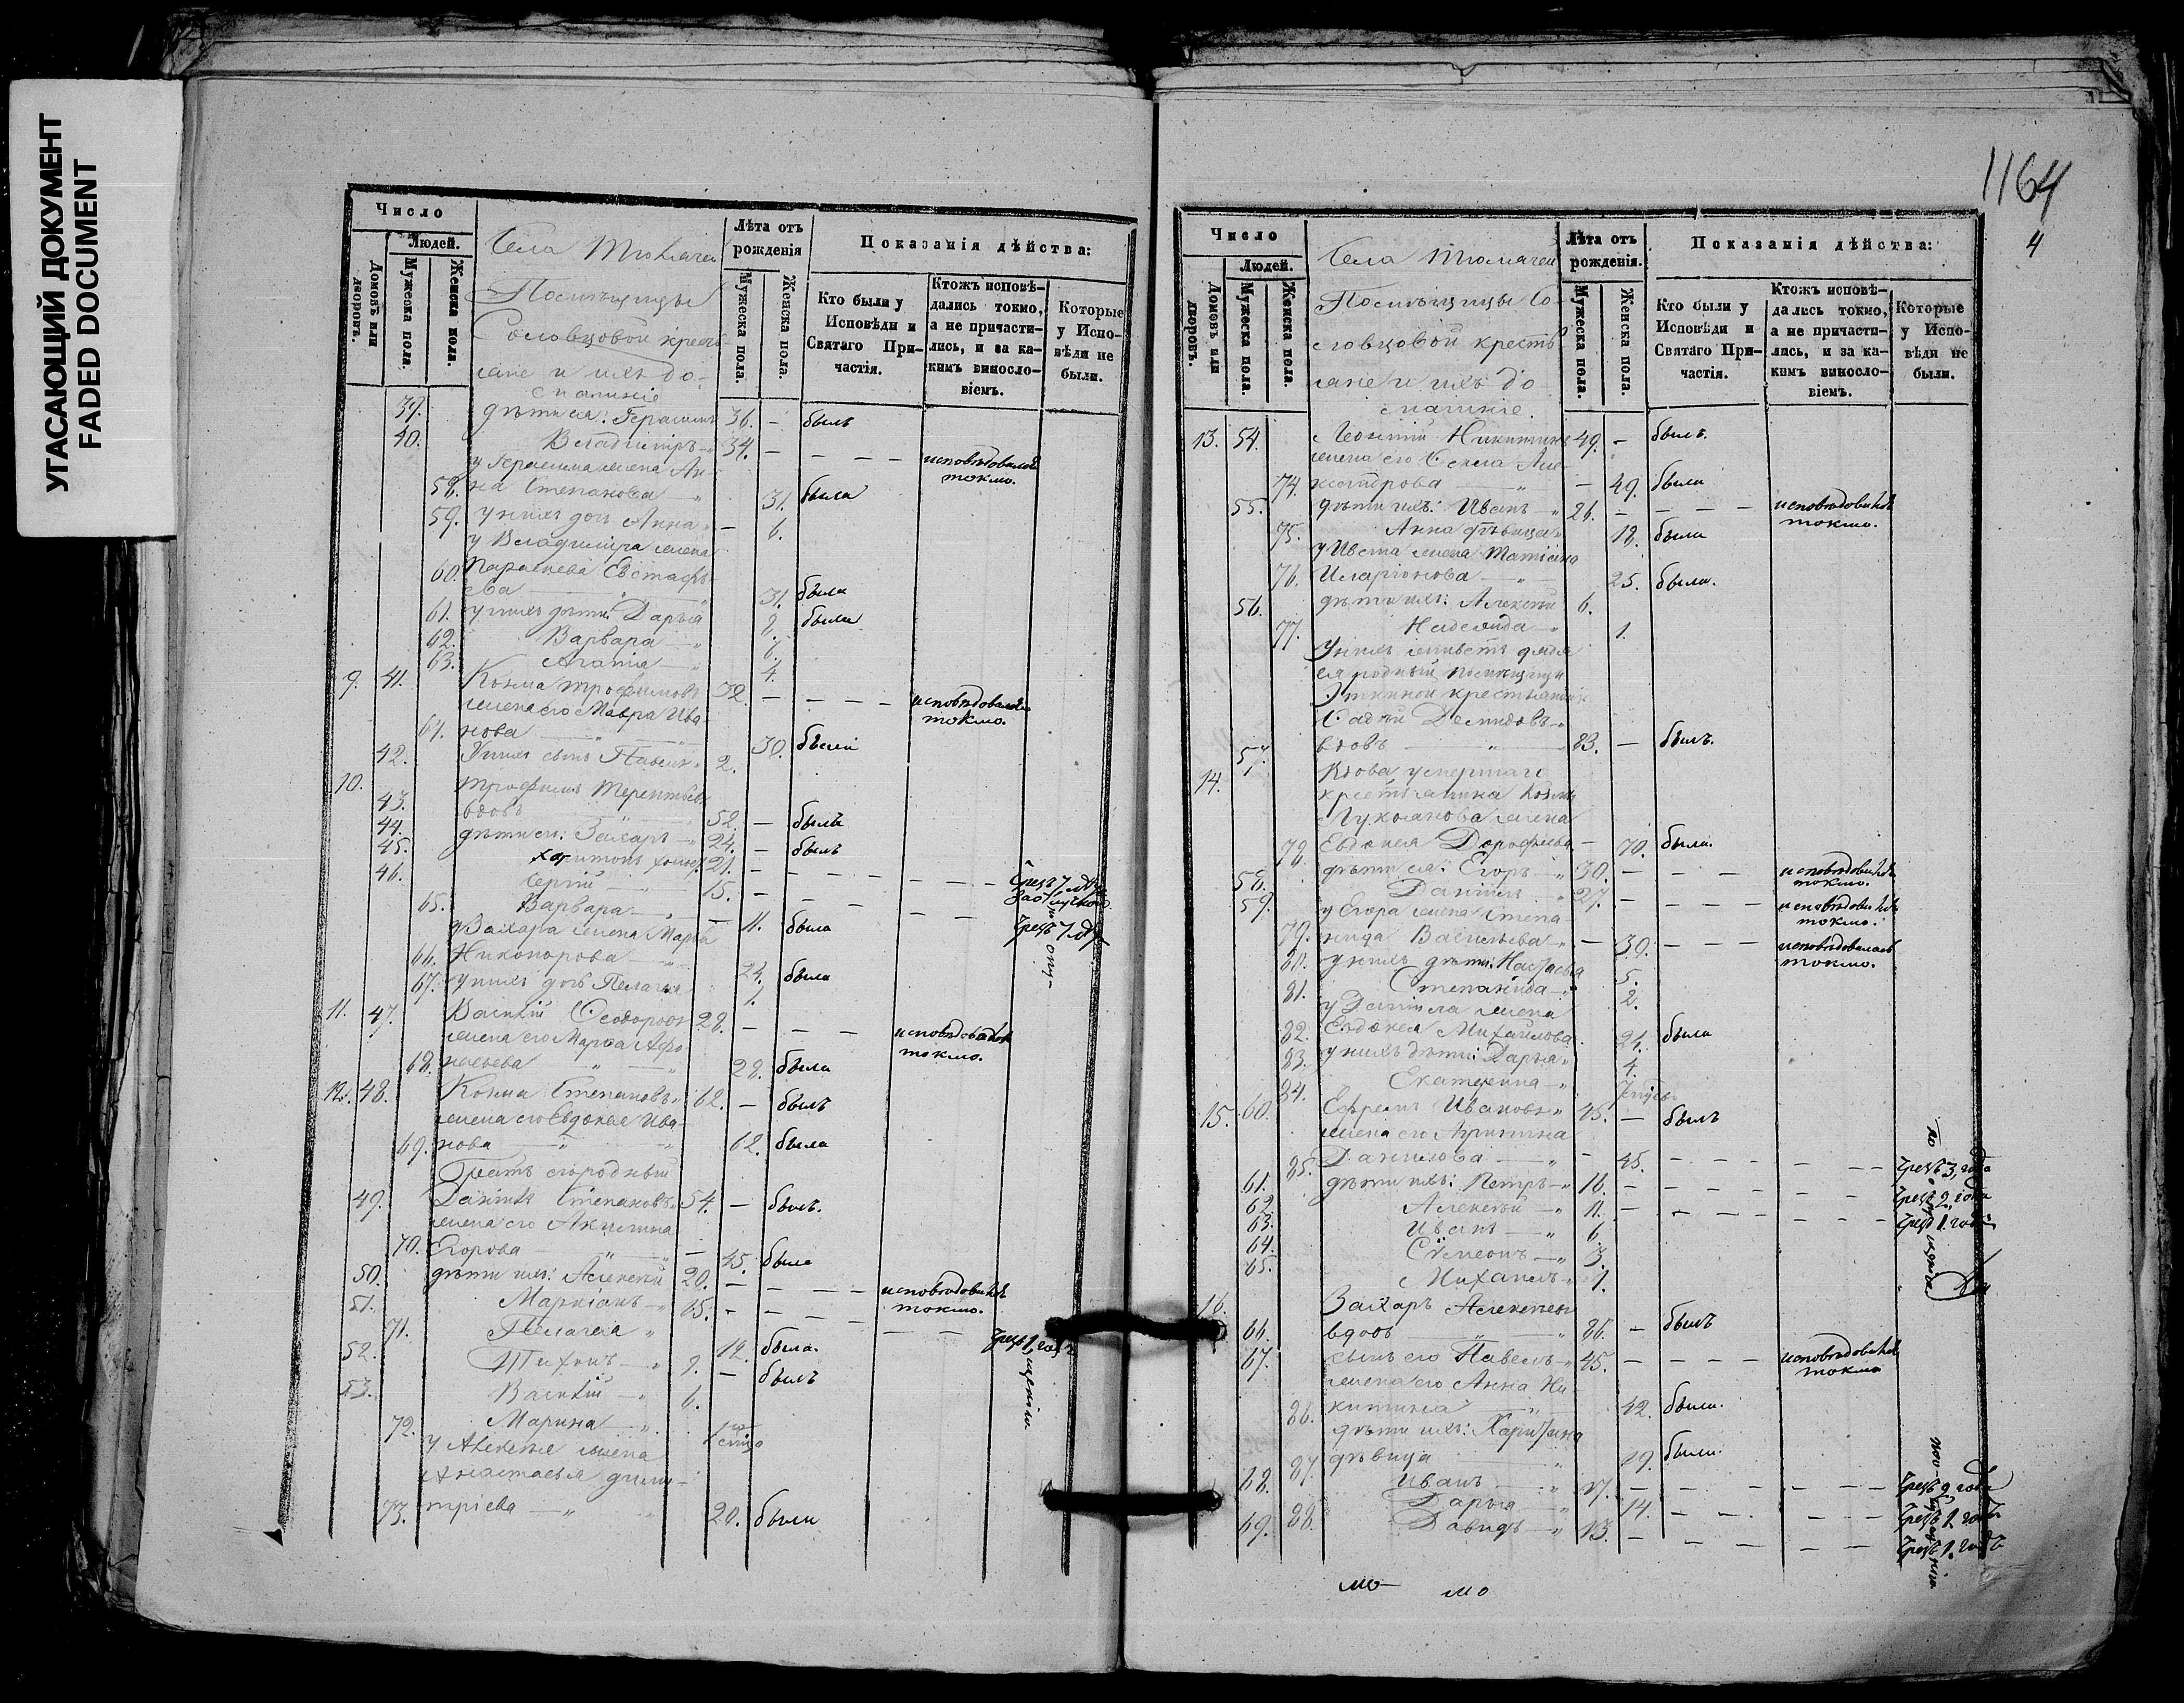 УГАСАЮЩИЙ ДОКУМЕНТ
FADED DOCUMENT
Число
Людей.
Домовъ или дворовъ.
Мужеска пола.
Женска пола.
Села
Помѣщицы
Словцовой кресть-
яне и ихъ до-
машніе
Лѣта отъ рожденія
Мужеска пола.
Женска пола.
Показанія дѣйства:
Кто были у Исповѣди и Святаго При-частія.
Ктожъ исповѣ-дались токмо, а не причасти-лись, и за ка-кимъ винословіемъ.
Которые у Испо-вѣди не были.
39. дѣти ея: Герасимъ 36. - былъ
40. Владимиръ 34. - исповѣдовался токмо.
у Герасима жена Ан-
58. на Степанова 31. была
59. у нихъ дочь Анна - 6.
у Владимира жена
60. Параскева Евстафь-
ева 31. была
61. у нихъ дѣти: Дарья 8. была
62. Варвара 6.
63. Агапія 4.
9. 41. Козма Трофимовъ 32. - исповѣдовался токмо.
жена его Мавра Ива-
64. нова 30. была
42. У нихъ сынъ Павелъ 2.
10. Трофимъ Терентьевъ
43. вдовъ 52. - былъ
44. дѣти его: Захаръ 24. - былъ
45. Харитонъ холост. 21. -
46. Сергій 15. -
65. Варвара - 11. была
у Захара жена Марья
66. Никонорова 24. была
67. у нихъ дочь Пелагея 1.
11. 47. Василій Ѳеодоровъ 28. - исповѣдовался токмо.
жена его Марѳа Аѳо-
68. насьева 28. была
12. 48. Козма Степановъ 62. - былъ
жена его Евдокея Ива-
69. нова 62. была
Братъ его родный
49. Степановъ 54. - былъ.
жена его Акилина
70. Егорова - 45. была
50. дѣти ихъ: Алексѣй 20. - исповѣдовался токмо.
51. Маркіанъ 15. -
71. Пелагея 12. была.
52. Тихонъ 9. - былъ
53. Василій 6.
72. Марина
у Алексѣя жена
Анастасья Дими-
73. тріева 20. была
1164
4
Число
Людей.
Домовъ или дворовъ.
Мужеска пола.
Женска пола.
Села
Помѣщицы Со-
ловцовой кресть-
яне и ихъ до-
машніе.
Лѣта отъ рожденія.
Мужеска пола.
Женска пола.
Показанія дѣйства:
Кто были у Исповѣди и Святаго При-частія.
Ктожъ исповѣ-дались токмо, а не причасти-лись, и за ка-кимъ винословіемъ.
Которые у Испо-вѣди не были.
13. 54. Леонтій Никитинъ 49. - былъ.
жена его Ксенія Але-
74. ксандрова - 49. была
55. дѣти ихъ: Иванъ 26. - исповѣдовался токмо.
75. Анна дѣвица 18. была
у Ивана жена Татіана
76. Иларіонова 25. была.
56. дѣти ихъ: Алексѣй 6.
77. Надежда 1.
У нихъ живетъ дядя
ея родный помѣщицы
крестьянинъ
Демидовъ
57. вдовъ 83. - былъ.
14. Вдова умершаго
крестьянина Козмы
Лукьянова жена
78. Евдокея Дорофѣева - 70. была.
58. дѣти ея: Егоръ 30. - исповѣдовался токмо.
59. Даніилъ 27. - исповѣдовался токмо.
у Егора жена Степа-
79. нида Васильева - 30. исповѣдовалась токмо.
80. у нихъ дѣти: Настасья 5.
81. Степанида 2.
у Даніила жена
82. Евдокея Михайлова 24. была
83. у нихъ дѣти: Дарья 4.
84. Екатерина
15. 60. Ефремъ Ивановъ 45. - былъ
жена его Агрипина
85. Данилова - 45. чрезъ 3, года
61. дѣти ихъ: Петръ 16. - чрезъ 2, года
62. Алексѣй 11. - чрезъ 1. годъ
63. Иванъ 6.
64. Симеонъ 3.
65. Михаилъ 1.
16. Захаръ Алексѣевъ
66. вдовъ 86. - былъ
67. сынъ его Павелъ 45. - исповѣдовался токмо
жена его Анна Ни-
86. китина 42. была.
дѣти ихъ: Харитина
87. дѣвица 19. была.
68. Иванъ 17. - чрезъ 2 года
88. Дарья 14. - чрезъ 1. годъ
69. Давидъ 13. - чрезъ 1. годъ
мо- мо